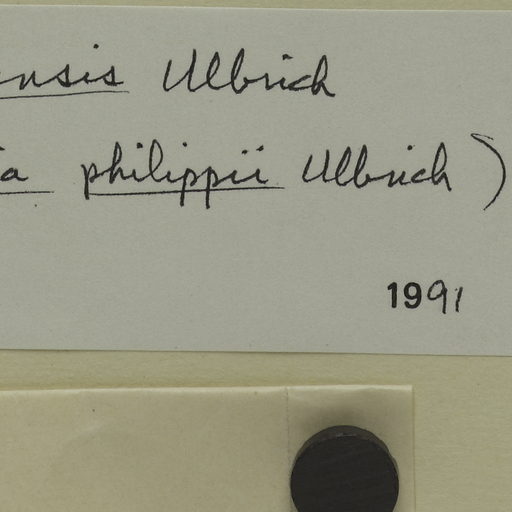 ensis Ulbrich
ia philippii Ulbrich )
1991